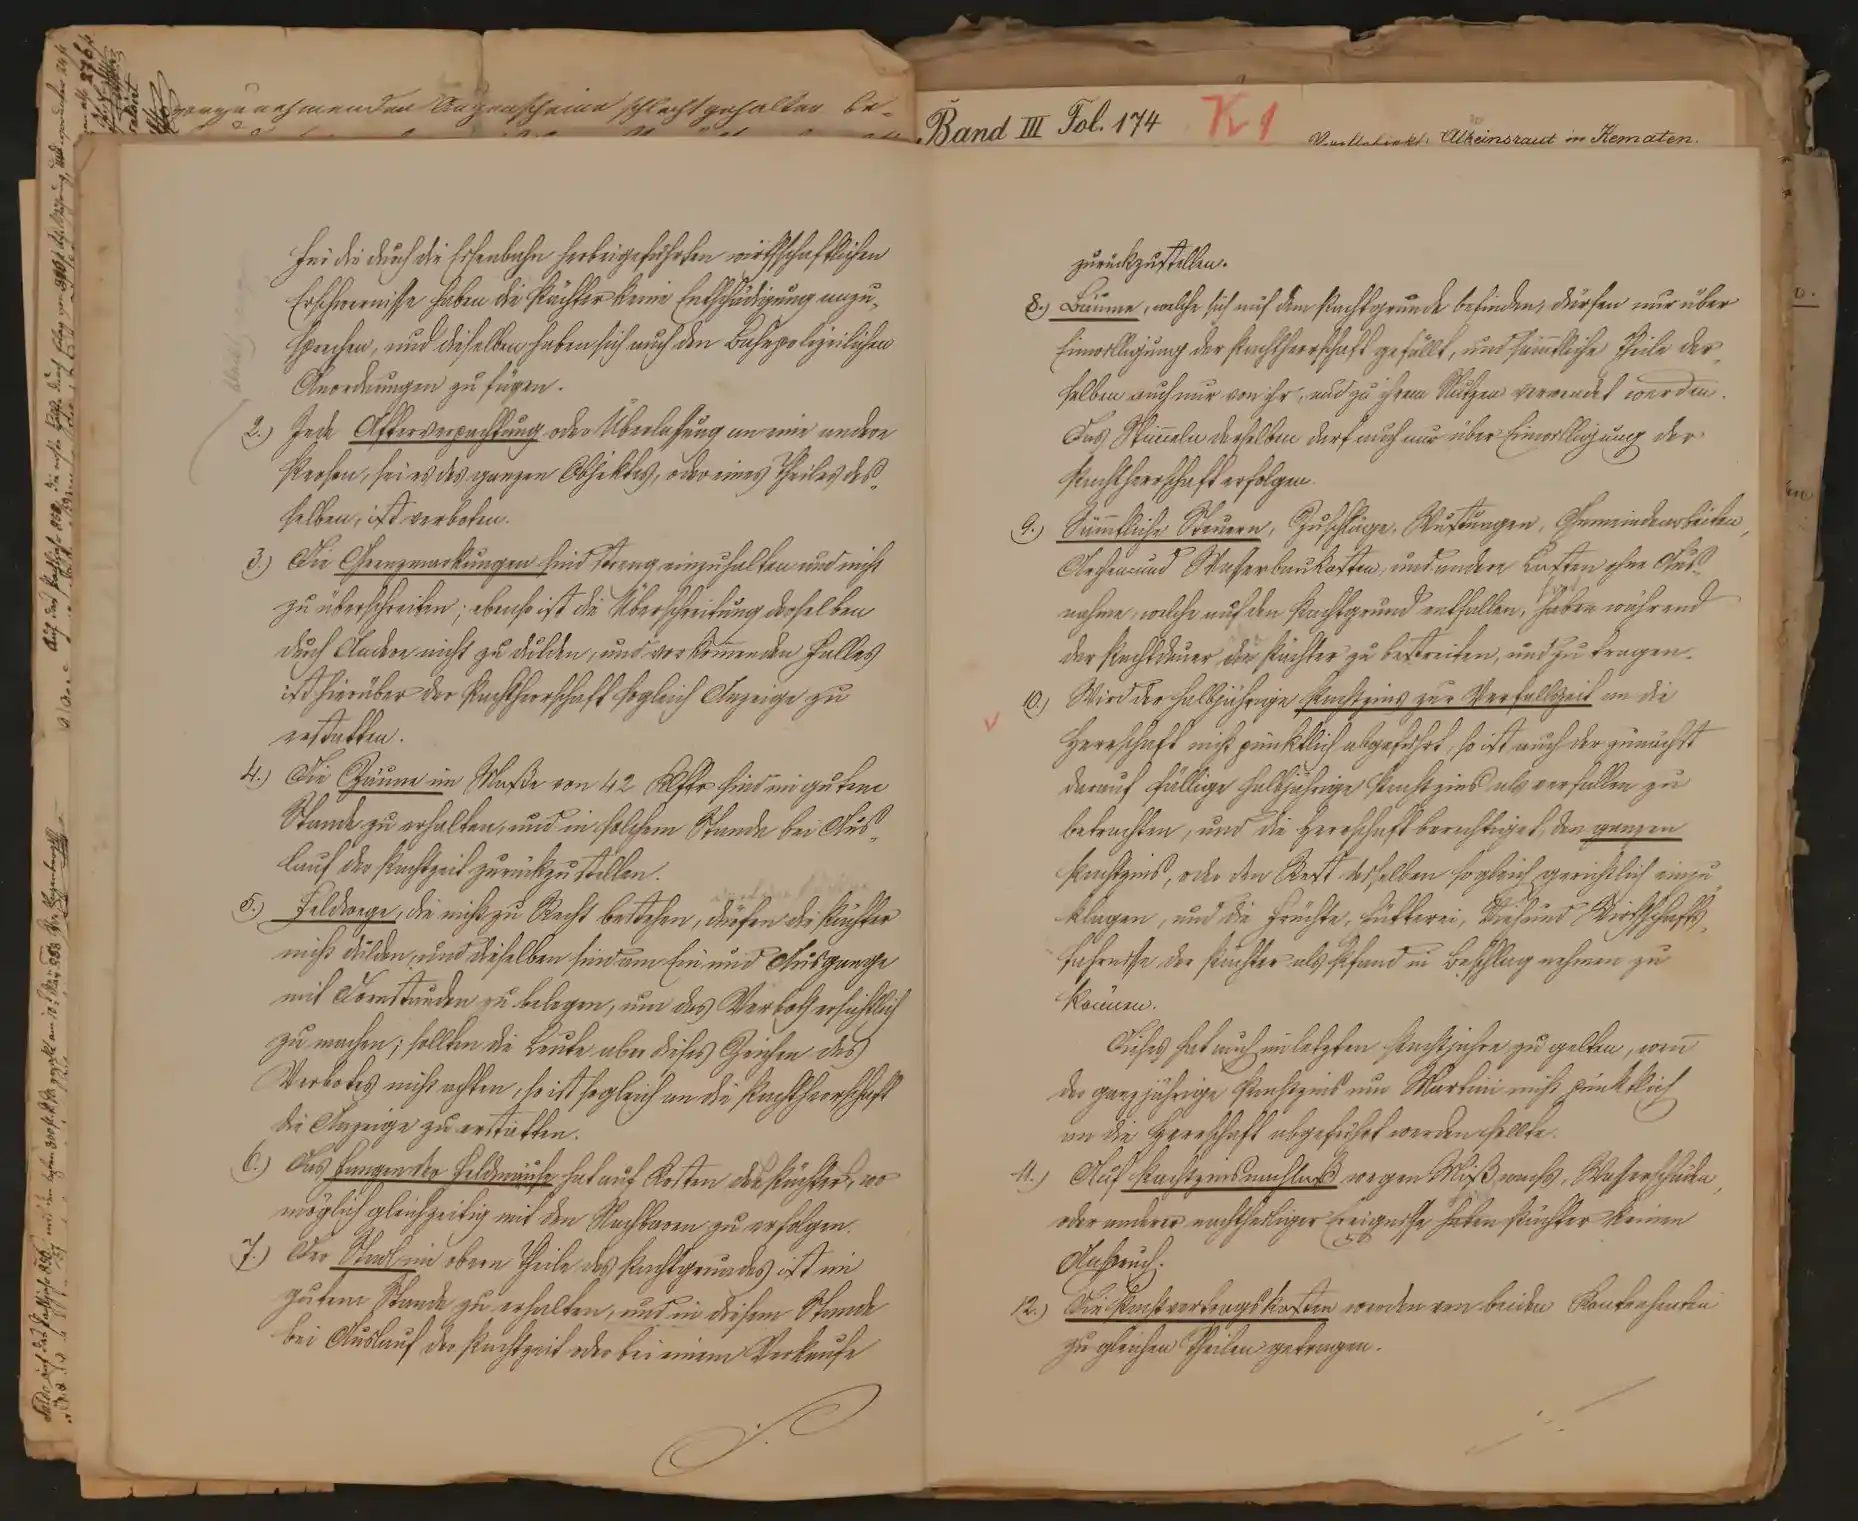 vorzunehmenden Augenscheine schlecht gehalten be-
Band III Fol. 174 K 1
Alkeinsraut in Kematen.
Für die durch die Eisenbahn herbeigeführten wirthschaftlichen
Erschwernisse haben die Pächter keine Entschädigung anzu-
sprechen, und dieselben haben sich auch den Bahnpolizeilichen
Anordnungen zu fügen.
2.) Jede Afterverpachtung oder Überlassung an eine andere
Person, sei es des ganzen Objektes, oder eines Theiles des-
selben, ist verboten.
3.) Die Grenzmarkungen sind streng einzuhalten und nicht
zu überschreiten; ebenso ist die Überschreitung derselben
durch Andere nicht zu dulden, und vorkommenden Falles
ist hierüber der Pachtherrschaft sogleich Anzeige zu
erstatten.
4.) Die Zäune im Maße von 42 Klftr sind in gutem
Stande zu erhalten, und in solchem Stande bei Aus-
lauf der Pachtzeit zurückzustellen.
5.) Feldwege, die nicht zu Recht bestehen, dürfen die Pächter
nicht dulden, und dieselben sind am Ein und Ausgange
mit Dornstauden zu belegen, um das Verbot ersichtlich
zu machen; sollten die Leute aber dieses Zeichen des
Verbotes nicht achten, so ist sogleich an die Pachtherrschaft
die Anzeige zu erstatten.
6.) Das Fangen der Feldmäuse hat auf Kosten der Pächter, wo
möglich gleichzeitig mit den Nachbaren zu erfolgen.
7.) Der Stadl im obern Theile des Pachtgrundes ist in
gutem Stande zu erhalten, und in diesem Stande
bei Auslauf der Pachtzeit oder bei einem Verkaufe
zurückzustellen.
8.) Bäume, welche sich auf dem Pachtgrunde befinden, dürfen nur über
Einwilligung der Pachtherrschaft gefällt, und sämmtliche Theile der-
selben auch nur von ihr, und zu ihrem Nutzen verwendet werden.
Das Stümeln derselben darf auch nur über Einwilligung der
Pachtherrschaft erfolgen.
9.) Sämmtliche Steuern, Zuschläge, Rustungen, Gemeindearbeiten,
Archen und Wasserbaukosten, und andere Lasten ohne Aus-
nahme, welche auf den Pachtgrund entfallen, haben während
der Pachtdauer die Pächter zu bestreiten, und zu tragen.
10.) Wird der halbjährige Pachtzins zur Verfallszeit an die
Herrschaft nicht pünktlich abgeführt, so ist auch der zunächst
darauf fällige halbjährige Pachtzins als verfallen zu
betrachten, und die Herrschaft berechtiget, den ganzen
Pachtzins, oder den Rest desselben sogleich gerichtlich einzu-
klagen, und die Früchte, Fütterei, Vieh und Wirthschafts-
fahrnisse der Pächter als Pfand in Beschlag nehmen zu
können.
Dieses hat auch im letzten Pachtjahre zu gelten, wenn
der ganzjährige Pachtzins um Martini nicht pünktlich
an die Herrschaft abgeführt werden sollte.
11.) Auf Pachtzinsnachlaß wegen Mißwachs, Wasserschäden,
oder anderer nachtheiliger Ereignisse haben Pächter keinen
Anspruch.
12.) Die Pachtvertragskosten werden von beiden Kontrahenten
zu gleichen Theilen getragen.